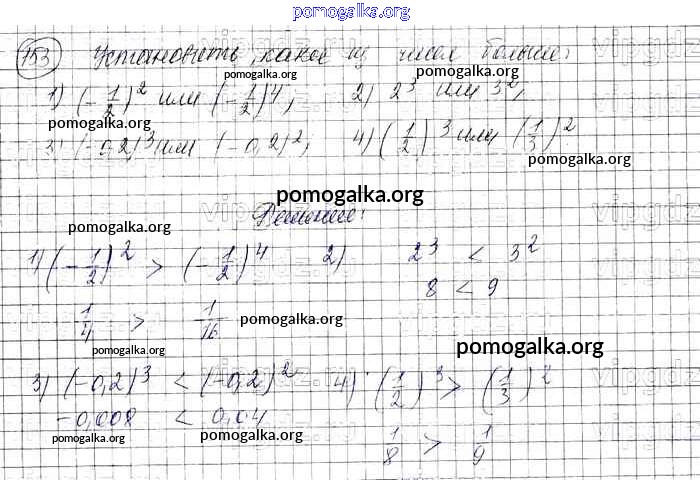 pomogalka.org
153 Установить, какое из чисел больше:
pomogalka.org pomogalka.org
1) (-1/2)² или (-1/2)⁴; 2) 2³ или 3²,
pomogalka.org
3) (-0,2)³ или (-0,2)²; 4) (1/2)³ или (1/3)²
pomogalka.org
pomogalka.org
Решение:
pomogalka.org
1) (-1/2)² > (-1/2)⁴ 2) 2³ < 3²
8 < 9
1/4 > 1/16 pomogalka.org
pomogalka.org pomogalka.org
3) (-0,2)³ < (-0,2)² 4) (1/2)³ > (1/3)²
-0,008 < 0,04
pomogalka.org pomogalka.org
1/8 > 1/9